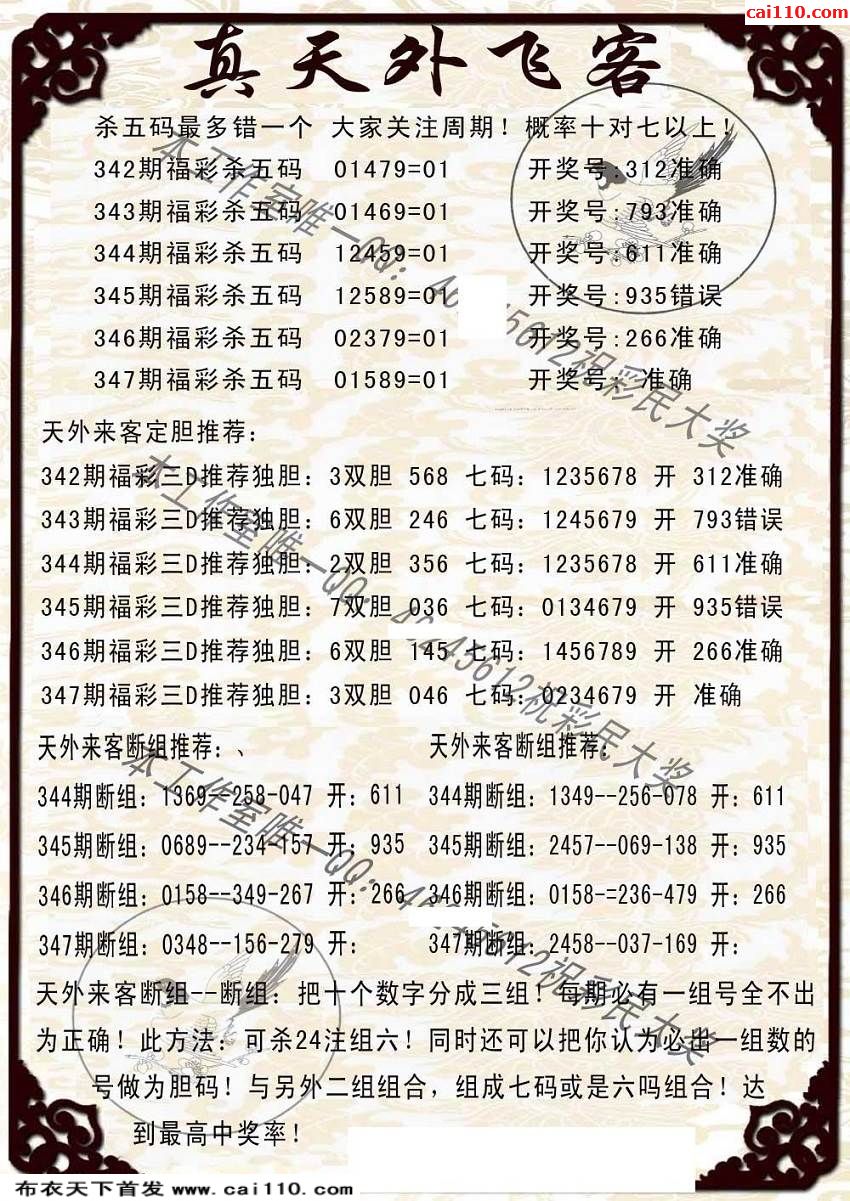 cai110.com
真天外飞客
杀五码最多错一个 大家关注周期！概率十对七以上！
342期福彩杀五码 01479=01 开奖号:312准确
343期福彩杀五码 01469=01 开奖号:793准确
344期福彩杀五码 12459=01 开奖号:611准确
345期福彩杀五码 12589=01 开奖号:935错误
346期福彩杀五码 02379=01 开奖号:266准确
347期福彩杀五码 01589=01 开奖号: 准确
天外来客定胆推荐：
342期福彩三D推荐独胆：3双胆 568 七码：1235678 开 312准确
343期福彩三D推荐独胆：6双胆 246 七码：1245679 开 793错误
344期福彩三D推荐独胆：2双胆 356 七码：1235678 开 611准确
345期福彩三D推荐独胆：7双胆 036 七码：0134679 开 935错误
346期福彩三D推荐独胆：6双胆 145 七码：1456789 开 266准确
347期福彩三D推荐独胆：3双胆 046 七码：0234679 开 准确
天外来客断组推荐：、 天外来客断组推荐：
344期断组：1369--258-047 开：611 344期断组：1349--256-078 开：611
345期断组：0689--234-157 开：935 345期断组：2457--069-138 开：935
346期断组：0158--349-267 开：266 346期断组：0158-=236-479 开：266
347期断组：0348--156-279 开： 347期断组：2458--037-169 开：
天外来客断组--断组：把十个数字分成三组！每期必有一组号全不出
为正确！此方法：可杀24注组六！同时还可以把你认为必出一组数的
号做为胆码！与另外二组组合，组成七码或是六吗组合！达
到最高中奖率！
本工作室唯一QQ：
祝彩民大奖
本工作室唯一QQ：
祝彩民大奖
本工作室唯一QQ：
祝彩民大奖
布衣天下首发 www.cai110.com